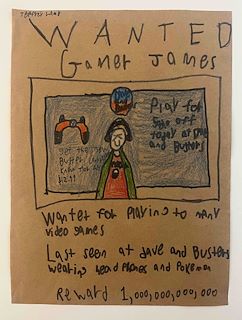 WANTED
Gamer James
Play for
off
today at
and Busters
get the new
Wantet for Playing to many
video games
Last seen at dave and Busters
wearing headphones and Pokemon
Reward 1,000,000,000,000